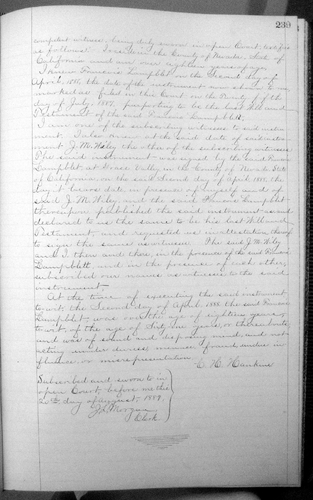 239
competent witness, being duly sworn in open Court, testifies
as follows: I reside in the County of Nevada, State of
California and am over eighteen years of age.
I knew Francis Lampblet on the Second day of
April, 1886 the date of the instrument now shown to me,
marked as filed in this Court on the
day of July, 1889, purporting to be the last Will and
Testament of the said Francis Lampblet.
I am one of the subscribing witnesses to said instru-
ment. I also knew at the said date of said instru-
ment J. M. Wiley the other of the subscribing witnesses
The said instrument was signed by the said Francis
Lampblet at Grass Valley in the County of Nevada State
of California, on the said Second day of April, 1886, the
day it bears date in presence of myself and of
said J. M. Wiley and the said Francis Lampblet
thereupon published the said instrument as and
declared to us the same to be his last Will and
Testament, and requested us in attestation thereof
to sign the same as witnesses. The said J. M. Wiley
and I then and there, in the presence of the said Francis
Lampblet, and in the presence of each other,
subscribed our names as witnesses to the said
instrument.
At the time of executing the said instrument
to wit, the Second day of April, 1886 the said Francis
Lampblet was over the age of eighteen years,
to wit, of the age of sixty years, or thereabouts,
and was of sound and disposing mind, and not
acting under duress, menace, fraud, undue in-
fluence, or misrepresentation.
C. H. Hawkins
Subscribed and sworn to in
open Court, before me this
day of August, 1889.
Morgan
Clerk